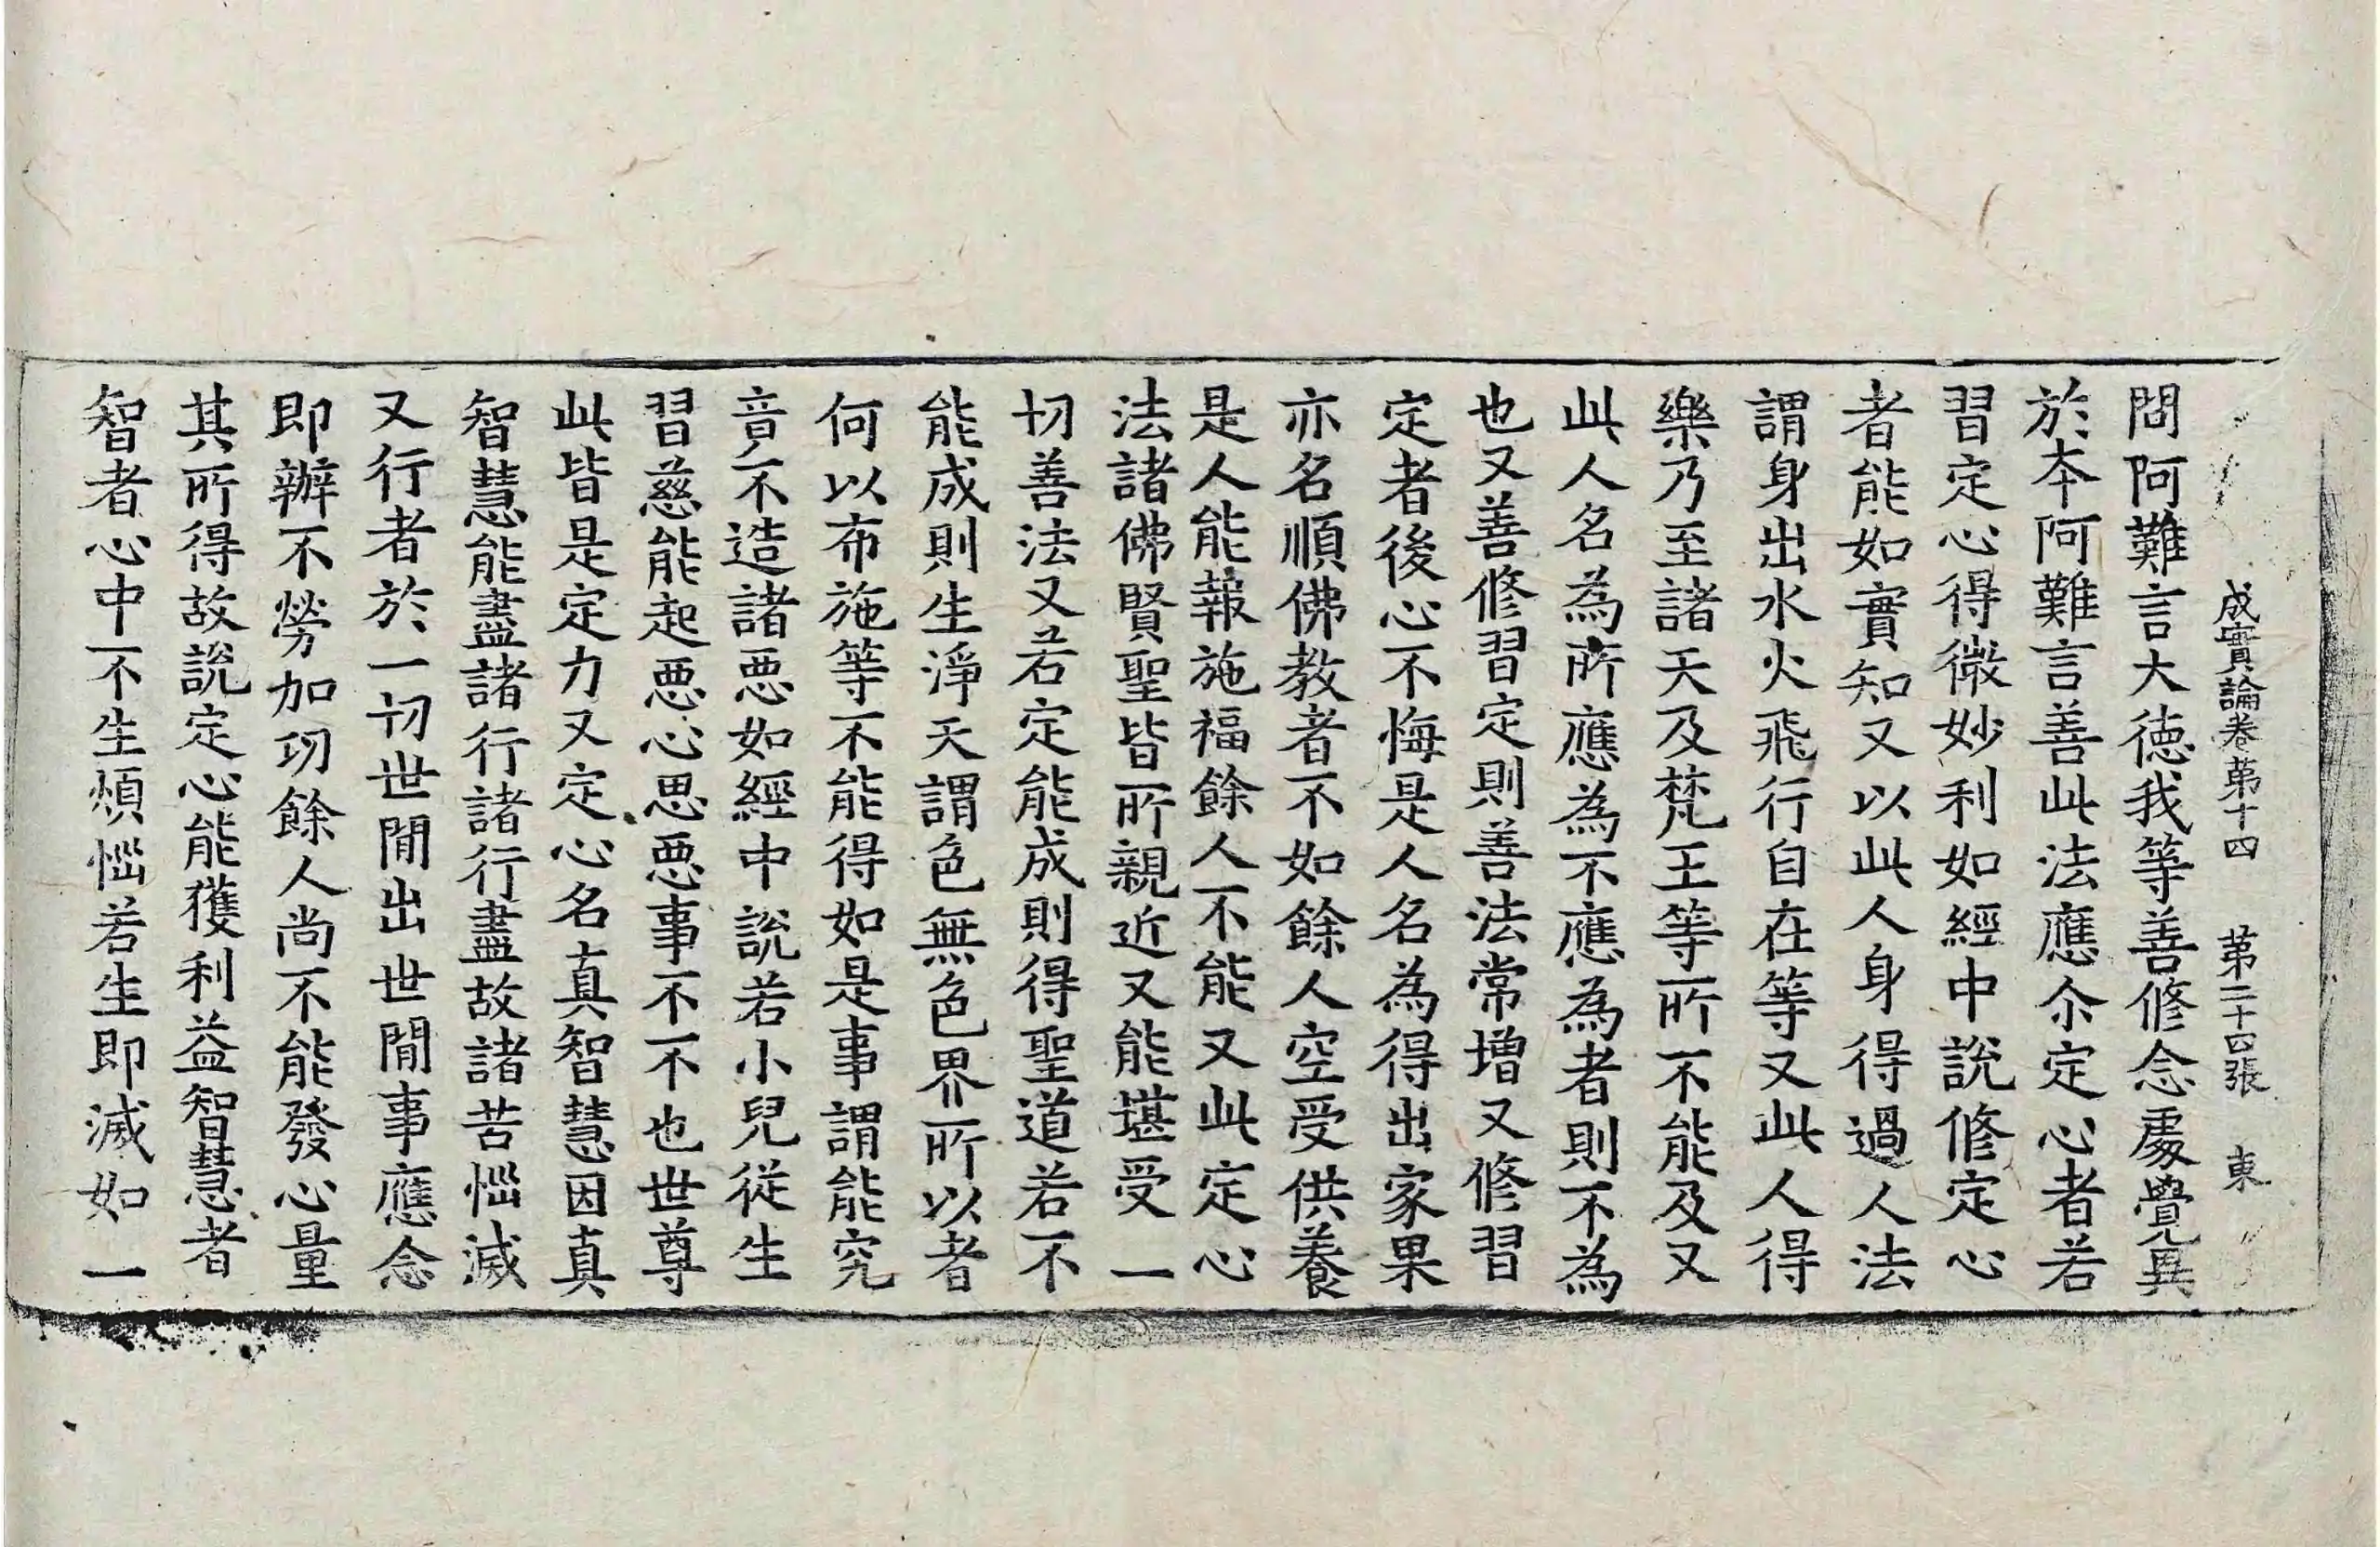 成實論卷第十四 第二十四張 東
問阿難言大德我等善修念處覺異
於本阿難言善此法應尒定心者若
習定心得微妙利如經中說修定心
者能如實知又以此人身得過人法
謂身出水火飛行自在等又此人得
樂乃至諸天及梵王等所不能及又
此人名為所應為不應為者則不為
也又善修習定則善法常增又修習
定者後心不悔是人名為得出家果
亦名順佛教者不如餘人空受供養
是人能報施福餘人不能又此定心
法諸佛賢聖皆所親近又能堪受一
切善法又若定能成則得聖道若不
能成則生淨天謂色無色界所以者
何以布施等不能得如是事謂能究
音不造諸惡如經中說若小兒從生
習慈能起惡心思惡事不不也世尊
此皆是定力又定心名真智慧因真
智慧能盡諸行諸行盡故諸苦惱滅
又行者於一切世間出世間事應念
即辦不勞加功餘人尚不能發心量
其所得故說定心能獲利益智慧者
智者心中不生煩惱若生即滅如一